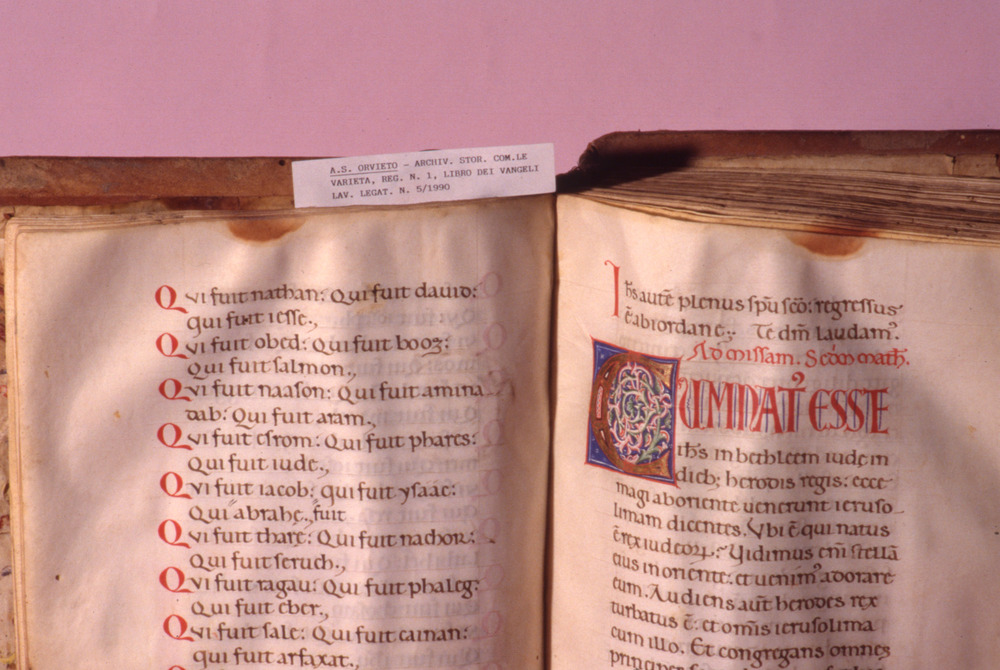 A.S. ORVIETO - ARCHIV. STOR. COM.LE
VARIETA, REG. N. 1, LIBRO DEI VANGELI
LAV. LEGAT. N. 5/1990
Qvi fuit nathan: Qui fuit dauid:
qui fuit iesse.,
Qvi fuit obed: Qui fuit booz:
Qui fuit salmon.,
Qvi fuit naason: Qui fuit amina
dab: Qui fuit aram.,
Qvi fuit esrom: Qui fuit phares:
Qui fuit iude.,
Qvi fuit iacob: qui fuit ysaac:
Qui abrahę., fuit
Qvi fuit tharę: Qui fuit nachor:
Qui fuit seruch.,
Qvi fuit ragau: Qui fuit phaleg:
Qui fuit eber.,
Qvi fuit sale: Qui fuit cainan:
qui fuit arfaxat.,
Ihs autē plenus spū scō: regressus
ē ab iordanę.; Te dm̄ laudam᷒.
Ad missam. Scdm math.
CUM NAT᷒ ESSET
ihs in bethleem iude in
dieb; herodis regis: ecce
magi ab oriente uenerunt ieruso
limam dicentes. Vbi ē qui natus
ē rex iudeoꝝ: Vidimus eni stellā
eius in oriente: et uenim᷒ adorare
eum. Audiens aut̄ herodes rex
turbatus ē: et omīs ierusolima
cum illo. Et congregans omnes
principes